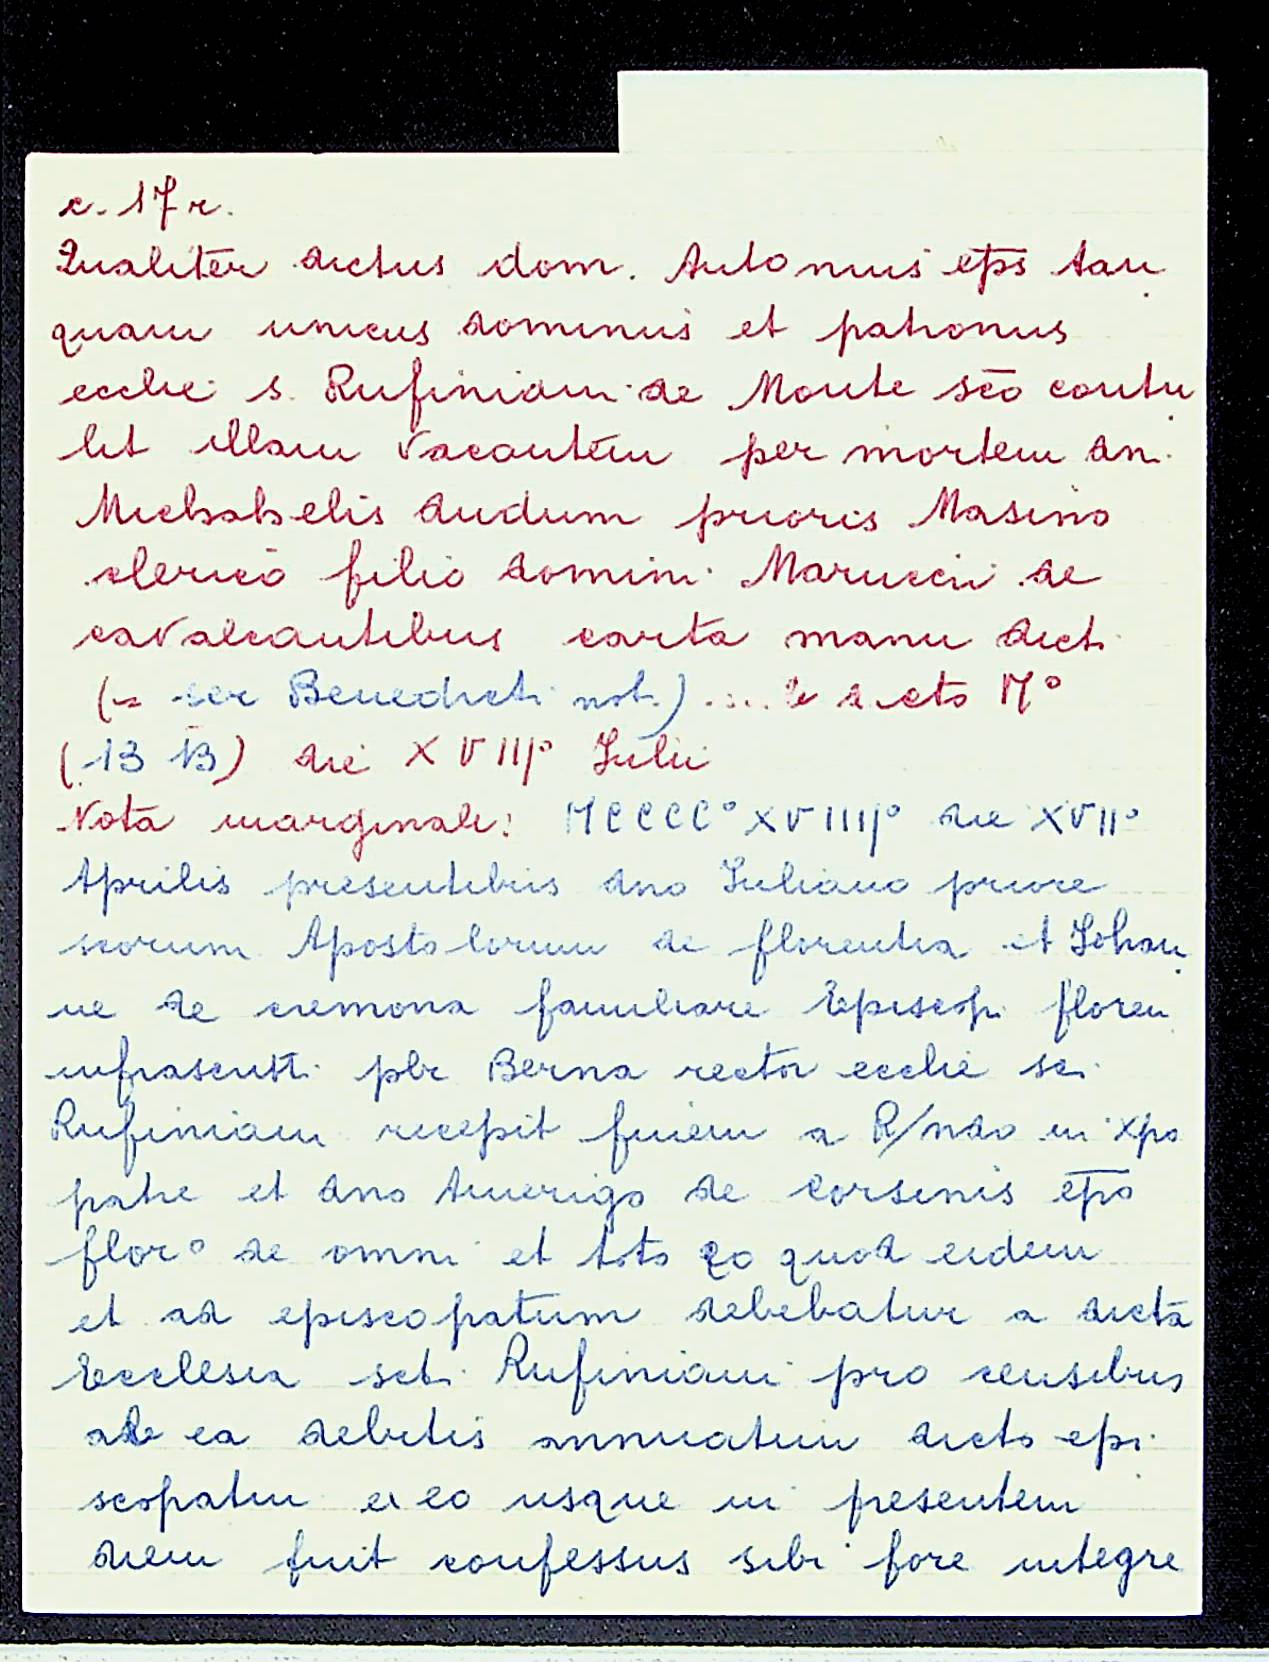 c. 17 r.
Qualiter dictus dom. Antonius ep̄s tan
quam unicus dominus et patronus
ecclie s. Rufiniani de Monte scō contu
lit illam vacantem per mortem dn.
Michahelis dudum prioris Masino
clerico filio domini Maruccii de
cavalcantibus carta manu dicti
(= ser Benedicti not.) .... dicto M°
(1313) die XVIII° Iulii
Nota marginale: MCCCC°XVIIII° die XVII°
Aprilis presentibus dno Iuliano priore
scorum Apostolorum de florentia et Iohan
ne de cremona familiare Episcopi floren
infrascripti pbr Berna rector ecclie sci
Rufiniani recepit finem a R/ndo in xpo
patre et dno Amerigo de Corsinis ep̄o
flor° de omni et toto eo quod eidem
et ad episcopatum debebatur a dicta
Ecclesia scti Rufiniani pro censibus
ab ea debitis annuatim dicto epi
scopatui ex eo usque in presentem
diem fuit confessus sibi fore integre